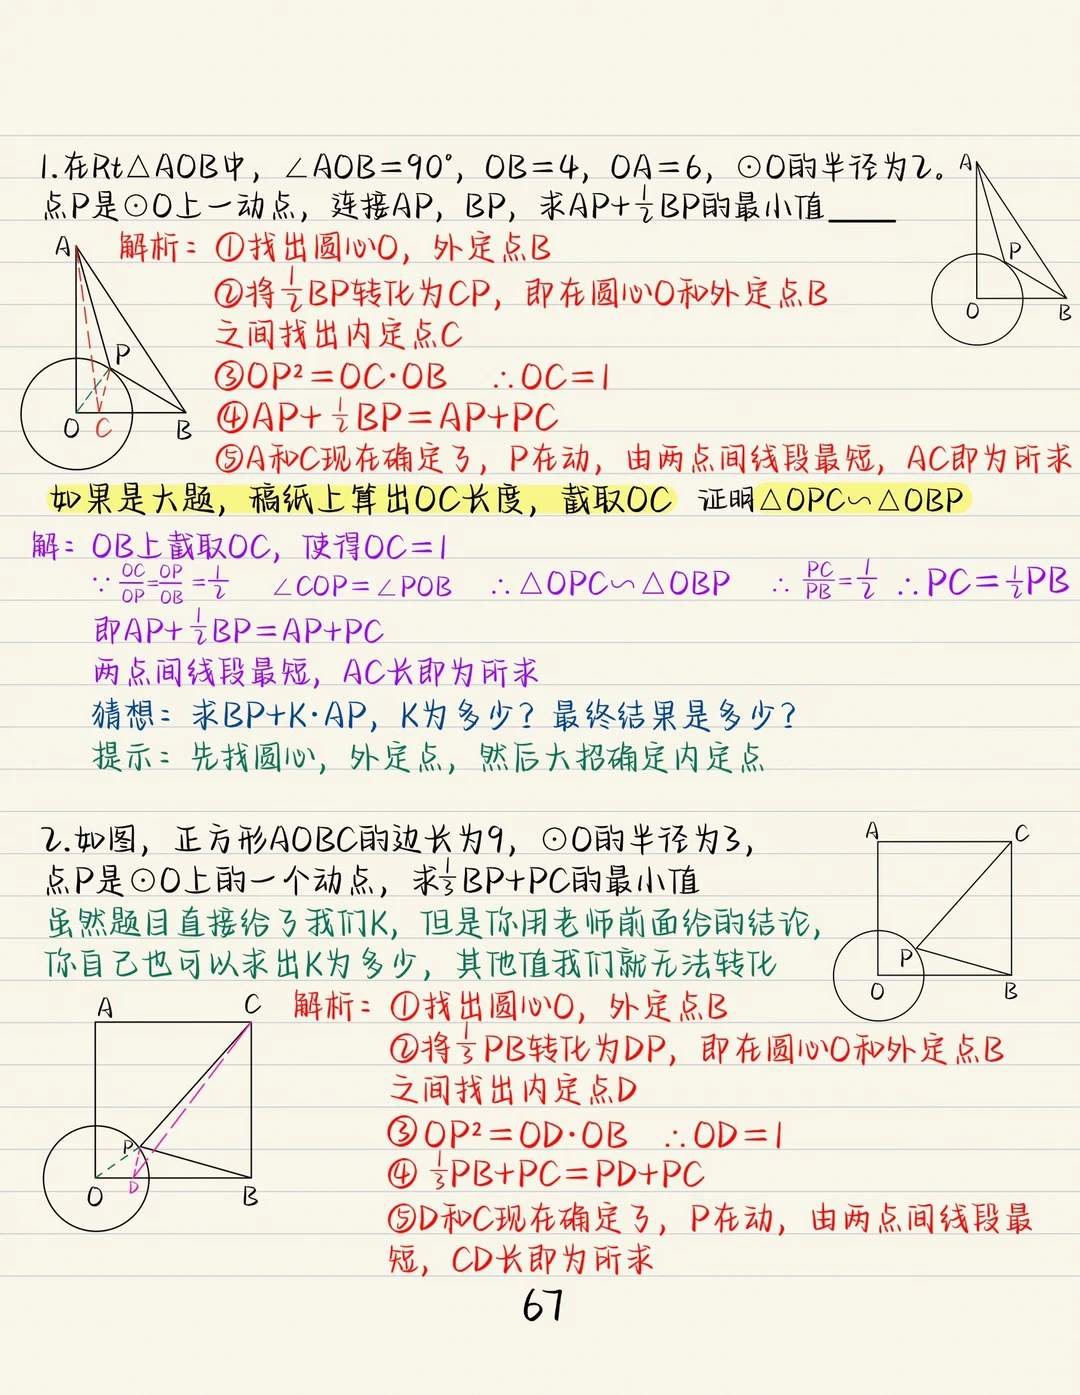 1.在Rt△AOB中，∠AOB=90°，OB=4，OA=6，⊙O的半径为2。
点P是⊙O上一动点，连接AP，BP，求AP+1/2BP的最小值____
A
P
O
B
A
P
O
C
B
解析：①找出圆心O，外定点B
②将1/2BP转化为CP，即在圆心O和外定点B
之间找出内定点C
③OP²=OC·OB ∴OC=1
④AP+1/2BP=AP+PC
⑤A和C现在确定了，P在动，由两点间线段最短，AC即为所求
如果是大题，稿纸上算出OC长度，截取OC 证明△OPC∽△OBP
解：OB上截取OC，使得OC=1
∵OC/OP=OP/OB=1/2 ∠COP=∠POB ∴△OPC∽△OBP ∴PC/PB=1/2 ∴PC=1/2PB
即AP+1/2BP=AP+PC
两点间线段最短，AC长即为所求
猜想：求BP+K·AP，K为多少？最终结果是多少？
提示：先找圆心，外定点，然后大招确定内定点
2.如图，正方形AOBC的边长为9，⊙O的半径为3，
点P是⊙O上的一个动点，求1/3BP+PC的最小值
虽然题目直接给了我们K，但是你用老师前面给的结论，
你自己也可以求出K为多少，其他值我们就无法转化
A
C
P
O
B
A
C
P
O
D
B
解析：①找出圆心O，外定点B
②将1/3PB转化为DP，即在圆心O和外定点B
之间找出内定点D
③OP²=OD·OB ∴OD=1
④1/3PB+PC=PD+PC
⑤D和C现在确定了，P在动，由两点间线段最
短，CD长即为所求
67